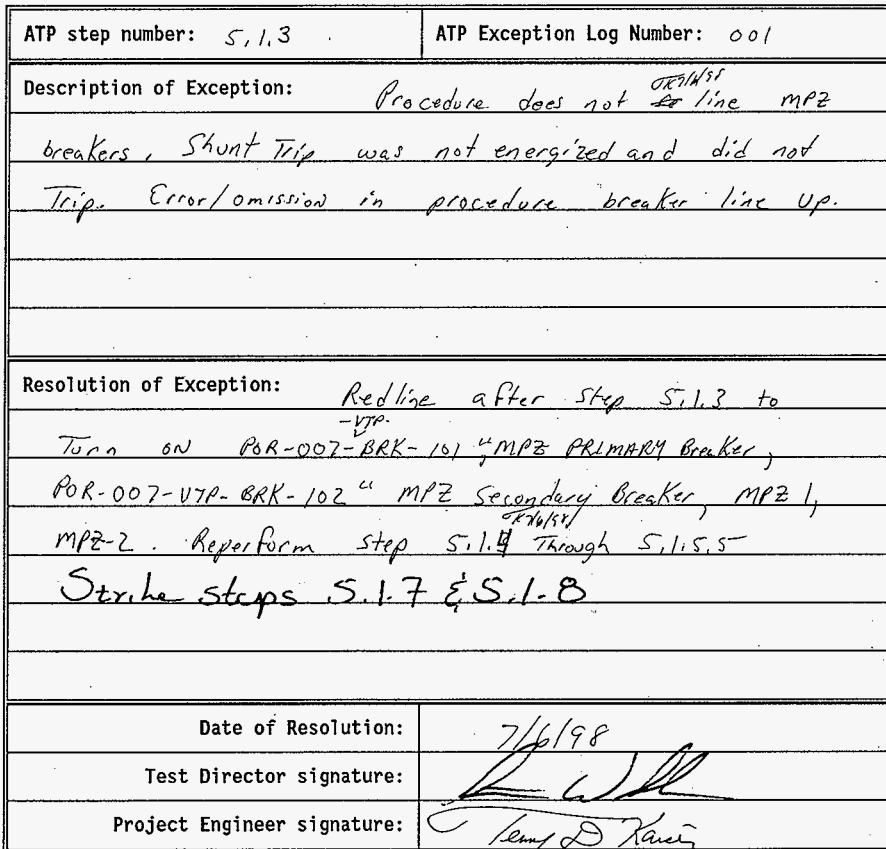 ATP step number: 5.1.3
ATP Exception Log Number: 001
Description of Exception: Procedure does not line MPZ
breakers, Shunt Trip was not energized and did not
Trip. Error/omission in procedure breaker line up.
Resolution of Exception: Redline after step 5.1.3 to
-VTP-
Turn ON POR-007-BRK-101 "MPZ PRIMARY Breaker,
POR-007-VTP-BRK-102 " MPZ Secondary Breaker, MPZ 1,
MPZ-2. Reperform step 5.1.4 Through 5.1.5.5
Strike steps 5.1.7 & 5.1.8
Date of Resolution: 7/6/98
Test Director signature:
Project Engineer signature: